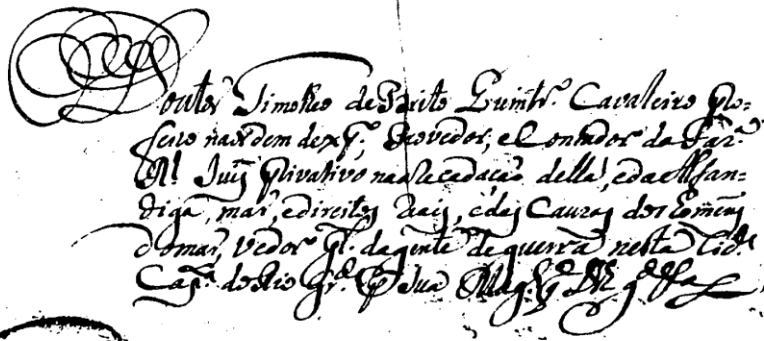 Doutor Timotheo de Brito Quintr.º Cavaleiro pro-
feço na ordem de xp.º, Provedor, e Contador da Faz.ª
R.l Juiz privativo na arecadação della, e da Alfan-
diga, mar, e direitos Reais, e das Cauzas dos Homens
do mar, Vedor g.l da gente de guerra nesta Cid.e
Cap.nia do Rio gr.de P Sua Mag.e q D.s g.de